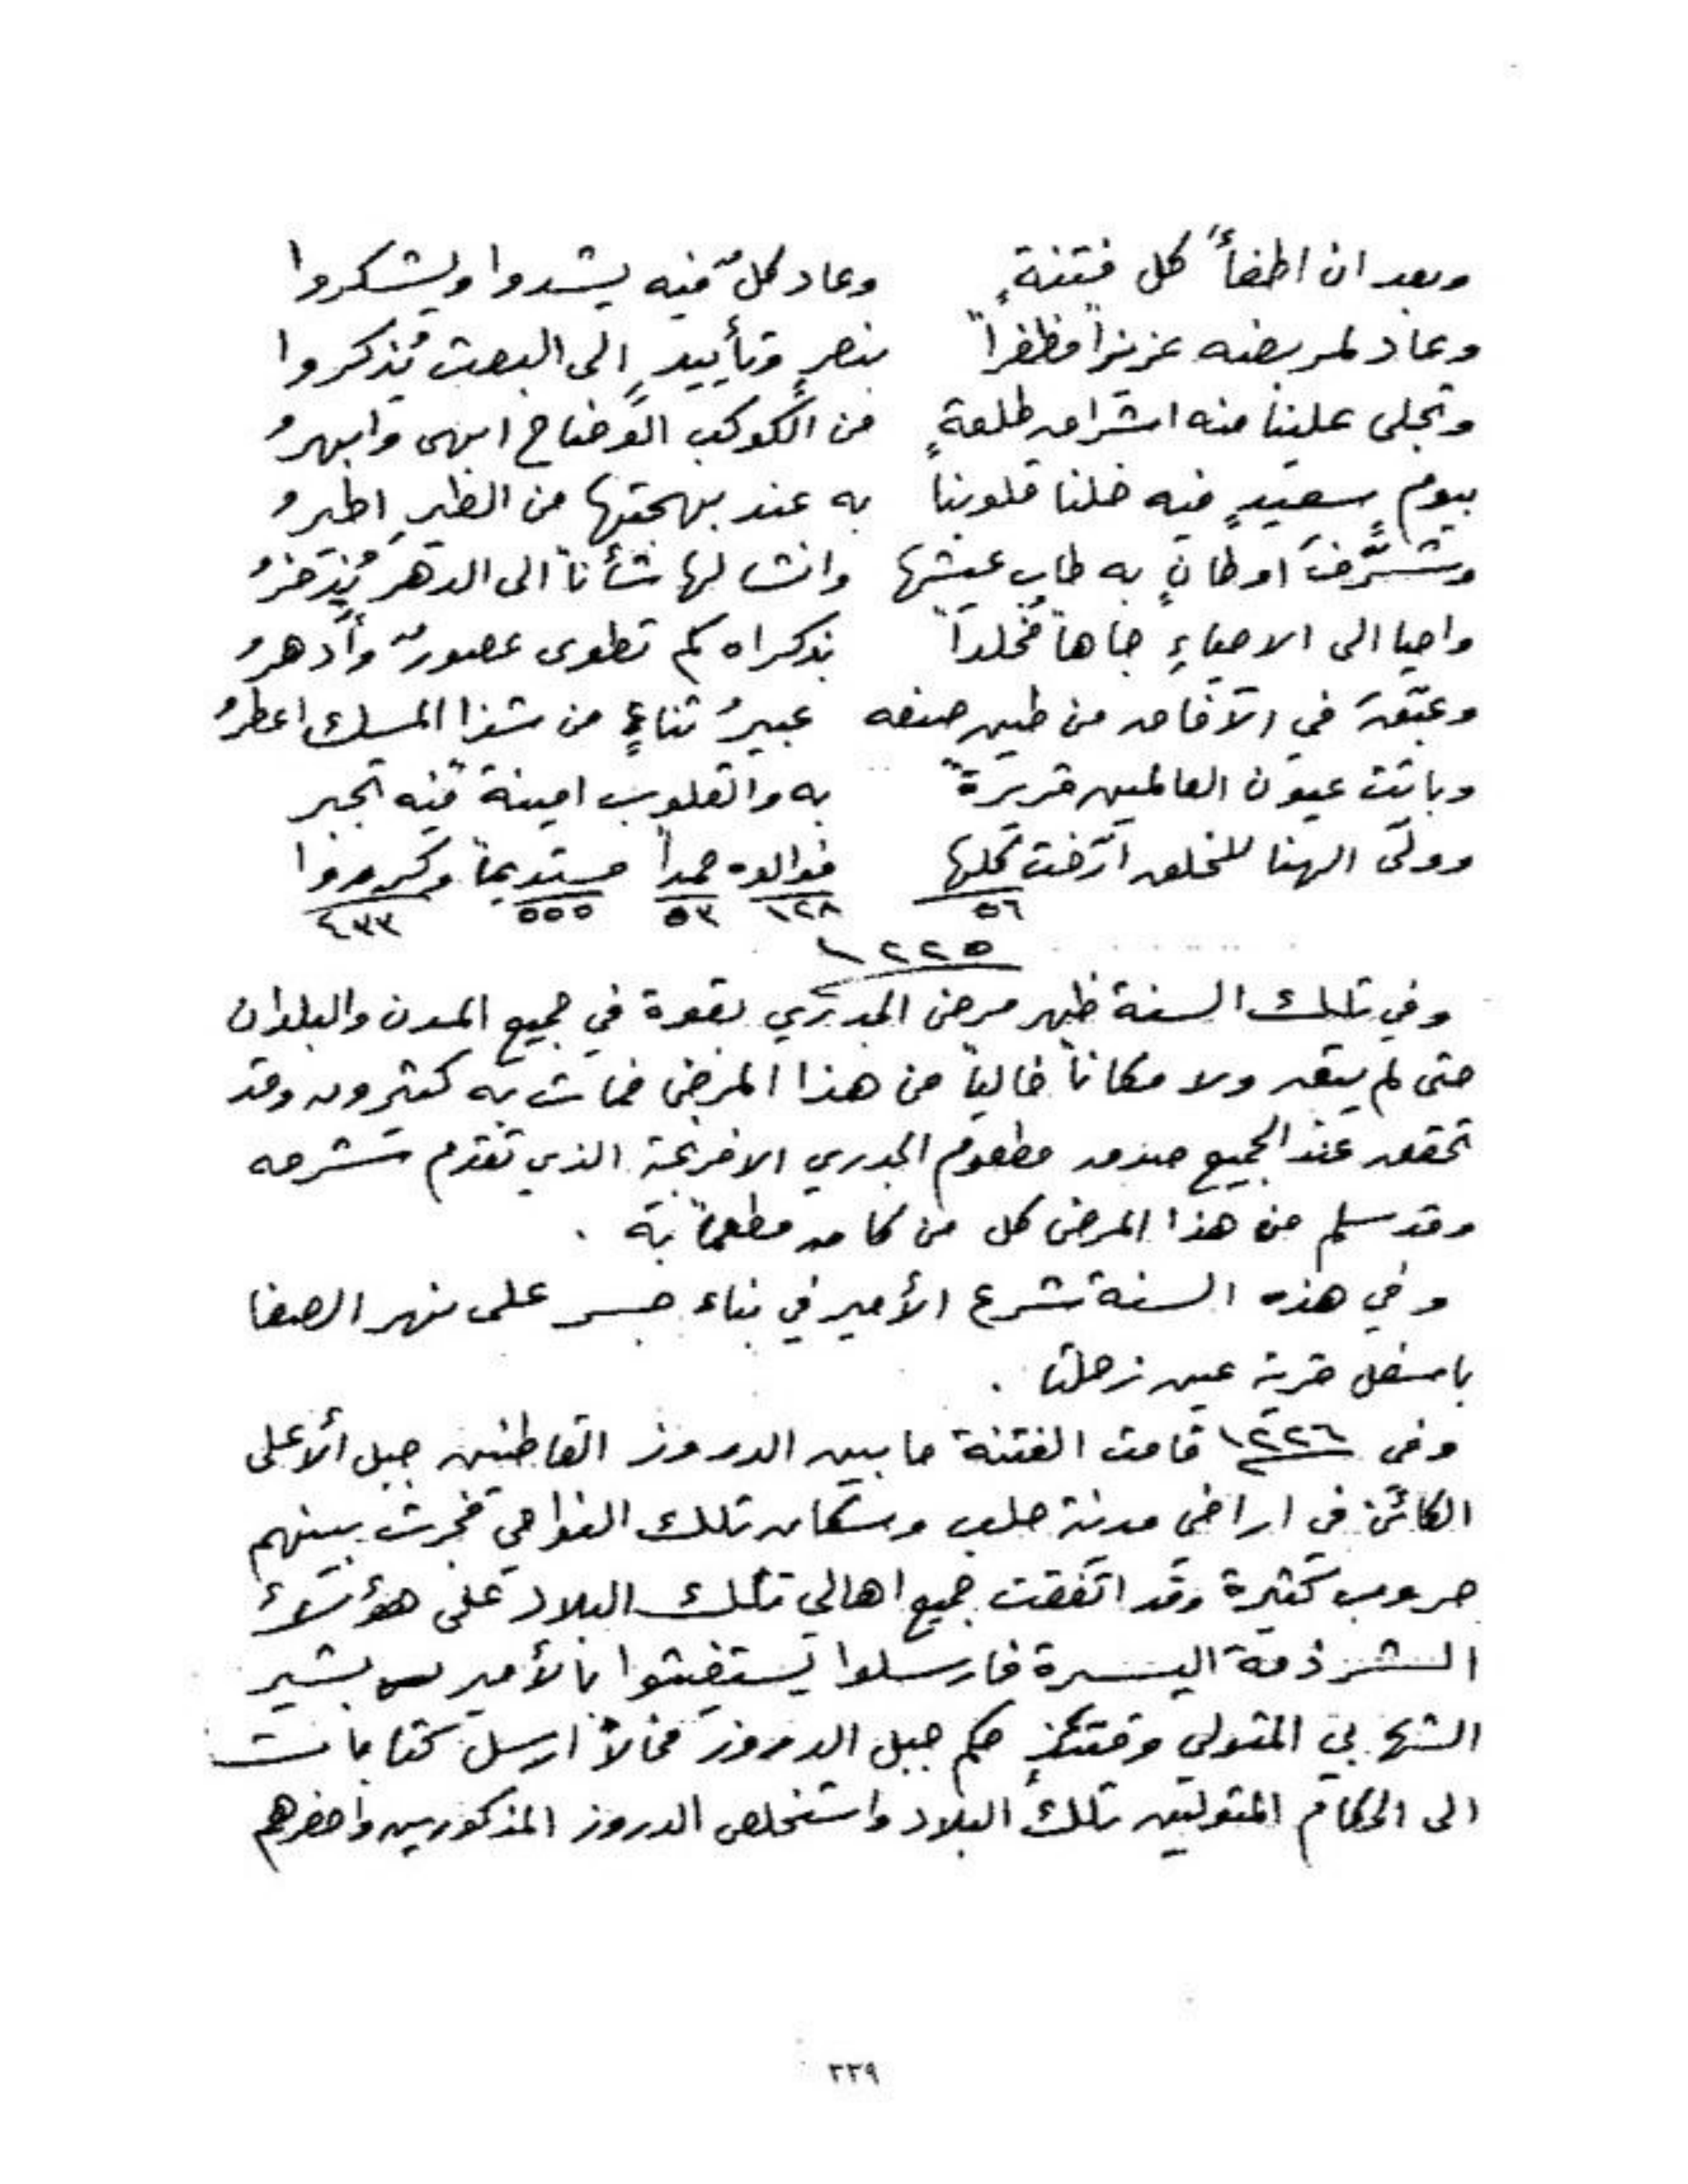 وبعد ان اطفأ كل فتنةٍ وعاد كلٌ فيه يشدوا ويشكروا
وعاد لمربضه عزيزاً مظفراً بنصرٍ وتأييدٍ الى البعث يُذكروا
وتجلى علينا منه اشراق طلعةٍ من الكوكب الوضاح ابهى وابهرُ
بيومٍ سعيدٍ فيه خلنا قلوبنا به عند بهجتها من الطيرِ اطيرُ
وشرَّفَ اوطانٍ به طاب عيشها وانشا لها شأناً الى الدهر يُذخرُ
واحيا الى الاحياءِ جاهاً مخلداً بذكراه كم تطوى عصورٌ وأدهرُ
وعبّقَ في الآفاق من طيب صنعه عبيرُ ثناءٍ من شذا المسك اعطرُ
وباتت عيون العالمين قريرةً به والقلوب امينة فيه تجبر
وولّى الهنا للخلق ارّخت كلها فوالوه حمداً مستديماً وكرروا
٥٦ ١٢٨ ٥٣ ٥٥٥ ٤٣٣
١٢٢٥
وفي تلك السنة ظهر مرض الجدري بقوة في جميع المدن والبلدان
حتى لم يبق ولا مكاناً خالياً من هذا المرض فمات به كثيرون وقد
تحقق عند الجميع صدق مطعوم الجدري الافرنجة الذي تقدم شرحه
وقد سلم من هذا المرض كل من كان مطعماً به .
وفي هذه السنة شرع الأمير في بناء جسر على نهر الصفا
باسفل قرية عين زحلتا .
وفي ١٢٢٦ قامت الفتنة ما بين الدروز القاطنين جبل الأعلى
الكائن في اراضي مدينة حلب وسكان تلك النواحي فجرت بينهم
حروب كثيرة وقد اتفقت جميع اهالي تلك البلاد على هؤلاء
الشرذمة اليسيرة فارسلوا يستغيثوا بالأمير بشير
الشهابي المتولي وقتئذٍ حكم جبل الدروز فحالاً ارسل كتابات
الى الحكام المتولين تلك البلاد واستخلص الدروز المذكورين واحضرهم
٢٣٩